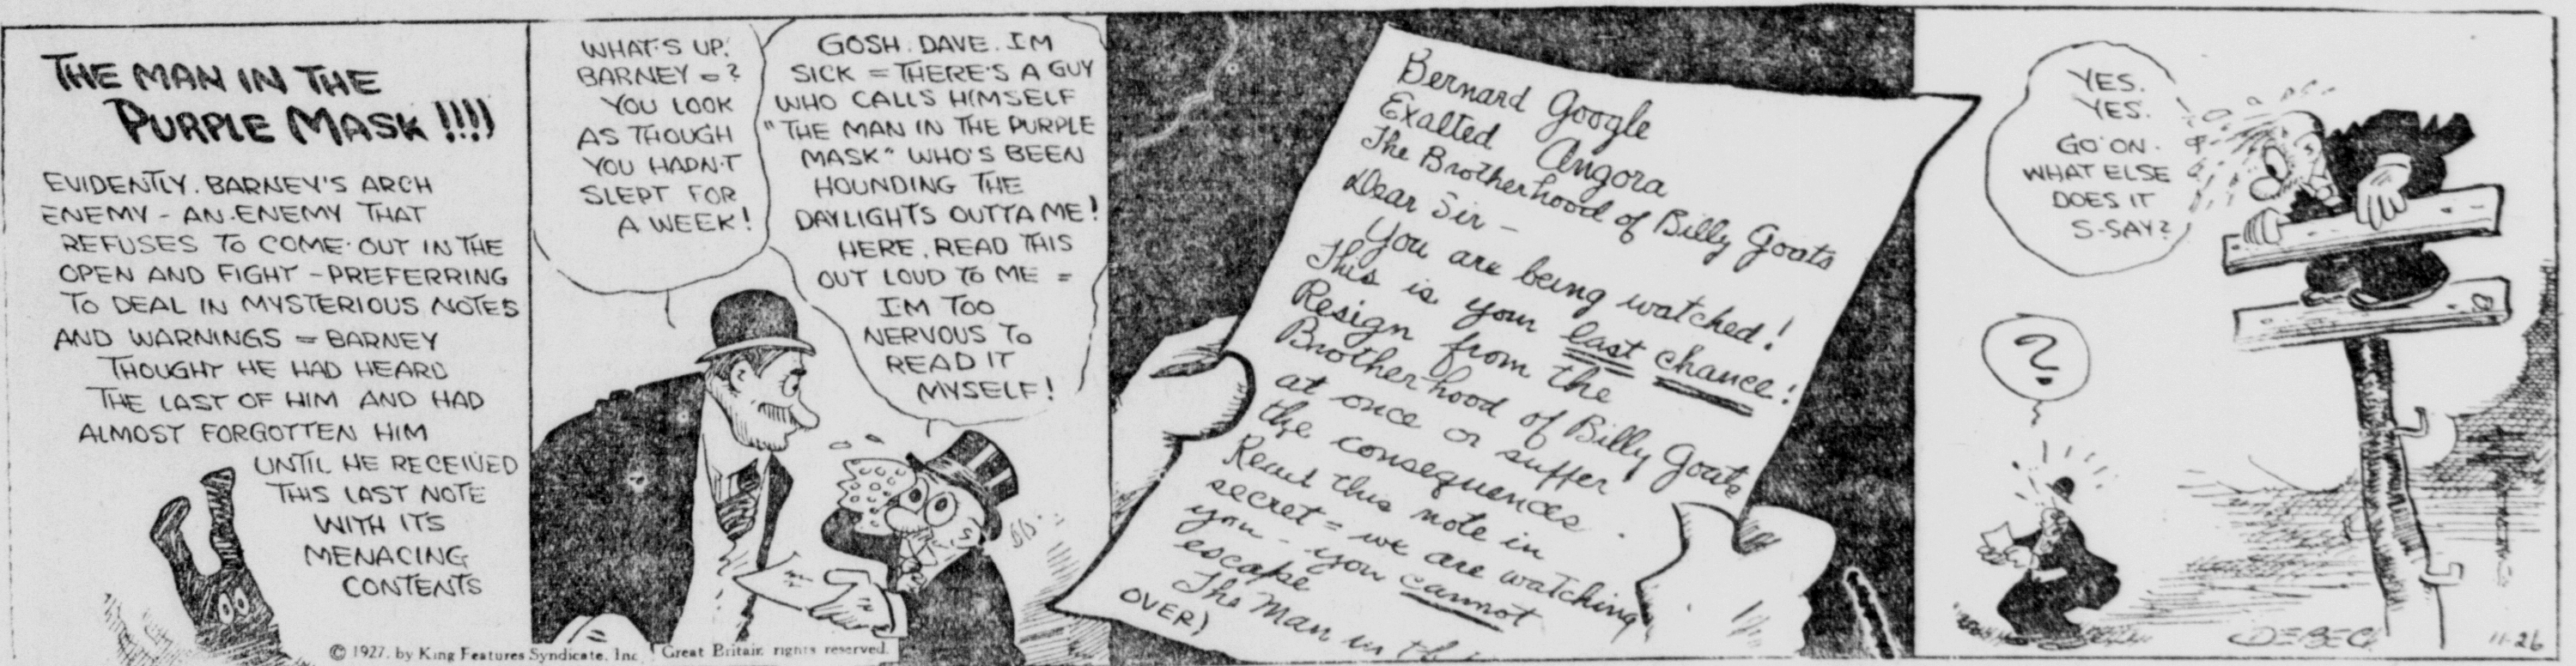 THE MAN IN THE
PURPLE MASK !!!!
EVIDENTLY. BARNEY'S ARCH
ENEMY - AN ENEMY THAT
REFUSES TO COME OUT IN THE
OPEN AND FIGHT - PREFERRING
TO DEAL IN MYSTERIOUS NOTES
AND WARNINGS = BARNEY
THOUGHT HE HAD HEARD
THE LAST OF HIM AND HAD
ALMOST FORGOTTEN HIM
UNTIL HE RECEIVED
THIS LAST NOTE
WITH ITS
MENACING
CONTENTS
WHAT'S UP.
BARNEY = ?
YOU LOOK
AS THOUGH
YOU HADN'T
SLEPT FOR
A WEEK!
GOSH. DAVE. I'M
SICK = THERE'S A GUY
WHO CALLS HIMSELF
"THE MAN IN THE PURPLE
MASK" WHO'S BEEN
HOUNDING THE
DAYLIGHTS OUTTA ME!
HERE, READ THIS
OUT LOUD TO ME =
I'M TOO
NERVOUS TO
READ IT
MYSELF!
© 1927, by King Features Syndicate, Inc
Great Britain rights reserved.
Bernard Google
Exalted Angora
The Brotherhood of Billy Goats
Dear Sir -
You are being watched!
This is your last chance!
Resign from the
Brotherhood of Billy Goats
at once or suffer
the consequences.
Read this note in
secret = we are watching
you - you cannot
escape
The Man in th
OVER)
YES.
YES.
GO ON.
WHAT ELSE
DOES IT
S-SAY?
?
DEBECK
11-26